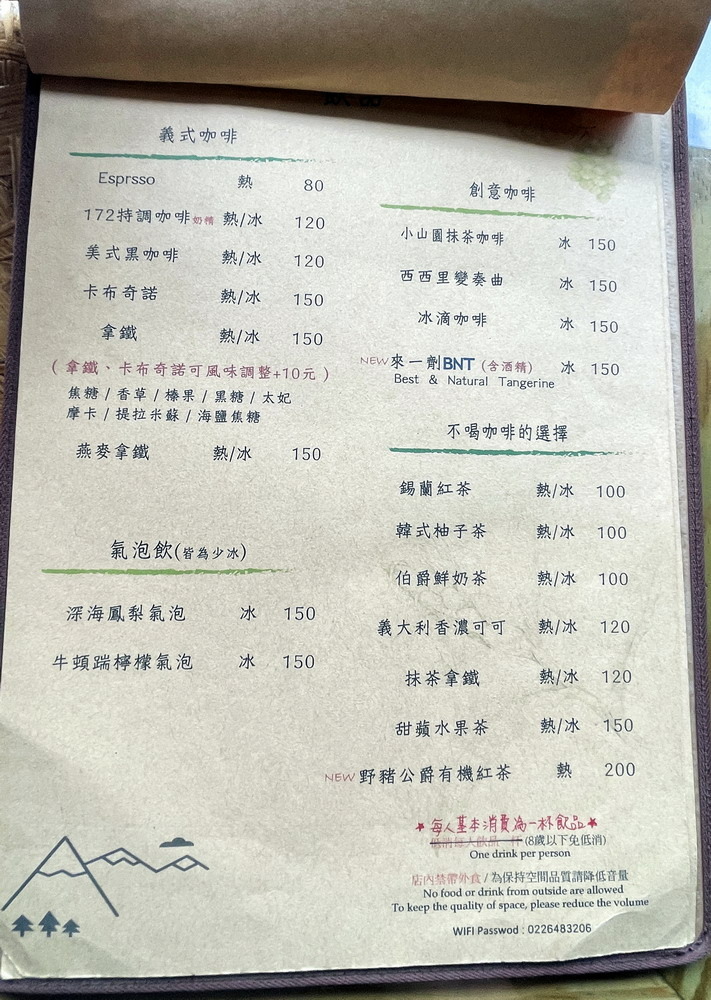 義式咖啡
Esprsso 熱 80
172特調咖啡奶精 熱/冰 120
美式黑咖啡 熱/冰 120
卡布奇諾 熱/冰 150
拿鐵 熱/冰 150
( 拿鐵、卡布奇諾可風味調整+10元 )
焦糖 / 香草 / 榛果 / 黑糖 / 太妃
摩卡 / 提拉米蘇 / 海鹽焦糖
燕麥拿鐵 熱/冰 150
氣泡飲(皆為少冰)
深海鳳梨氣泡 冰 150
牛頓踹檸檬氣泡 冰 150
創意咖啡
小山園抹茶咖啡 冰 150
西西里變奏曲 冰 150
冰滴咖啡 冰 150
NEW來一劑BNT (含酒精) 冰 150
Best & Natural Tangerine
不喝咖啡的選擇
錫蘭紅茶 熱/冰 100
韓式柚子茶 熱/冰 100
伯爵鮮奶茶 熱/冰 100
義大利香濃可可 熱/冰 120
抹茶拿鐵 熱/冰 120
甜蘋水果茶 熱/冰 150
NEW野豬公爵有機紅茶 熱 200
★每人基本消費為一杯飲品★
(8歲以下免低消)
One drink per person
店內禁帶外食 / 為保持空間品質請降低音量
No food or drink from outside are allowed
To keep the quality of space, please reduce the volume
WIFI Passwod : 0226483206